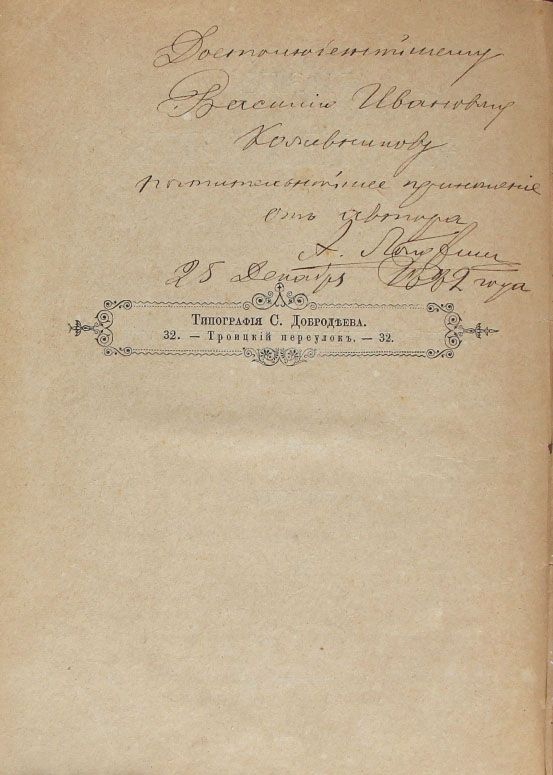 Достолюбезнѣйшему
Василію Ивановичу
Кожевникову
почтительнѣйшее приношеніе
отъ автора
А.
25 Декабря 1882 года
Типографія С. Добродѣева.
32. — Троицкій переулокъ. — 32.